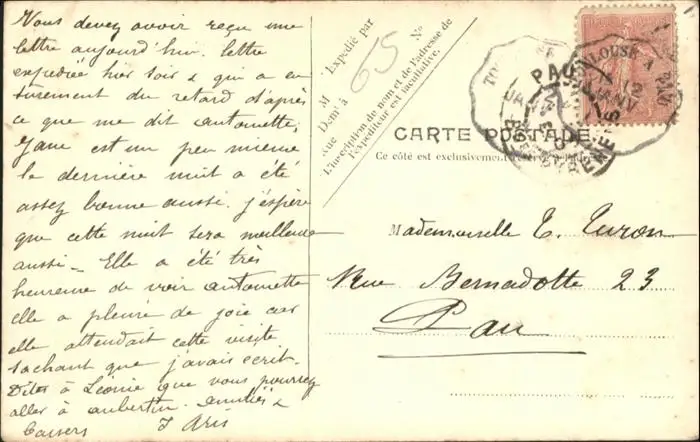 Vous devez avoir reçu une
lettre aujourd'hui. lettre
expediée hier soir & qui a eu
surement du retard d'après
ce que me dit antoinette,
Jane est un peu mieux
la dernière nuit a été
assez bonne aussi. j'espère
que cette nuit sera meilleure
aussi - Elle a été très
heureuse de voir antoinette
elle a pleuré de joie car
elle attendait cette visite
sachant que j'avais écrit.
Dites à Léonie que vous pourrez
aller à aubertin. amitiés &
baisers
M
Expédié par
Demt à
Rue
No
65
L'inscription du nom et de l'adresse de
l'expéditeur est facultative.
TOULOUSE A PAU
PAU
JANV
CARTE POSTALE
Ce côté est exclusivement
Mademoiselle T. Turon
Rue Bernadotte 23
Pau